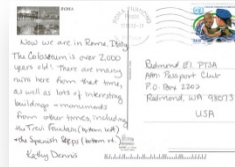 ROMA
Now we are in Rome, Italy.
The Colosseum is over 2,000
years old! There are many
ruins here from that time,
as well as lots of interesting
buildings & monuments
from other times, including
the Trevi Fountain (bottom
& the Spanish Steps (bottom
Kathy Dennis
Redmond El PTSA
Attn: Passport Club
P.O. Box 2202
Redmond, WA 98073
USA